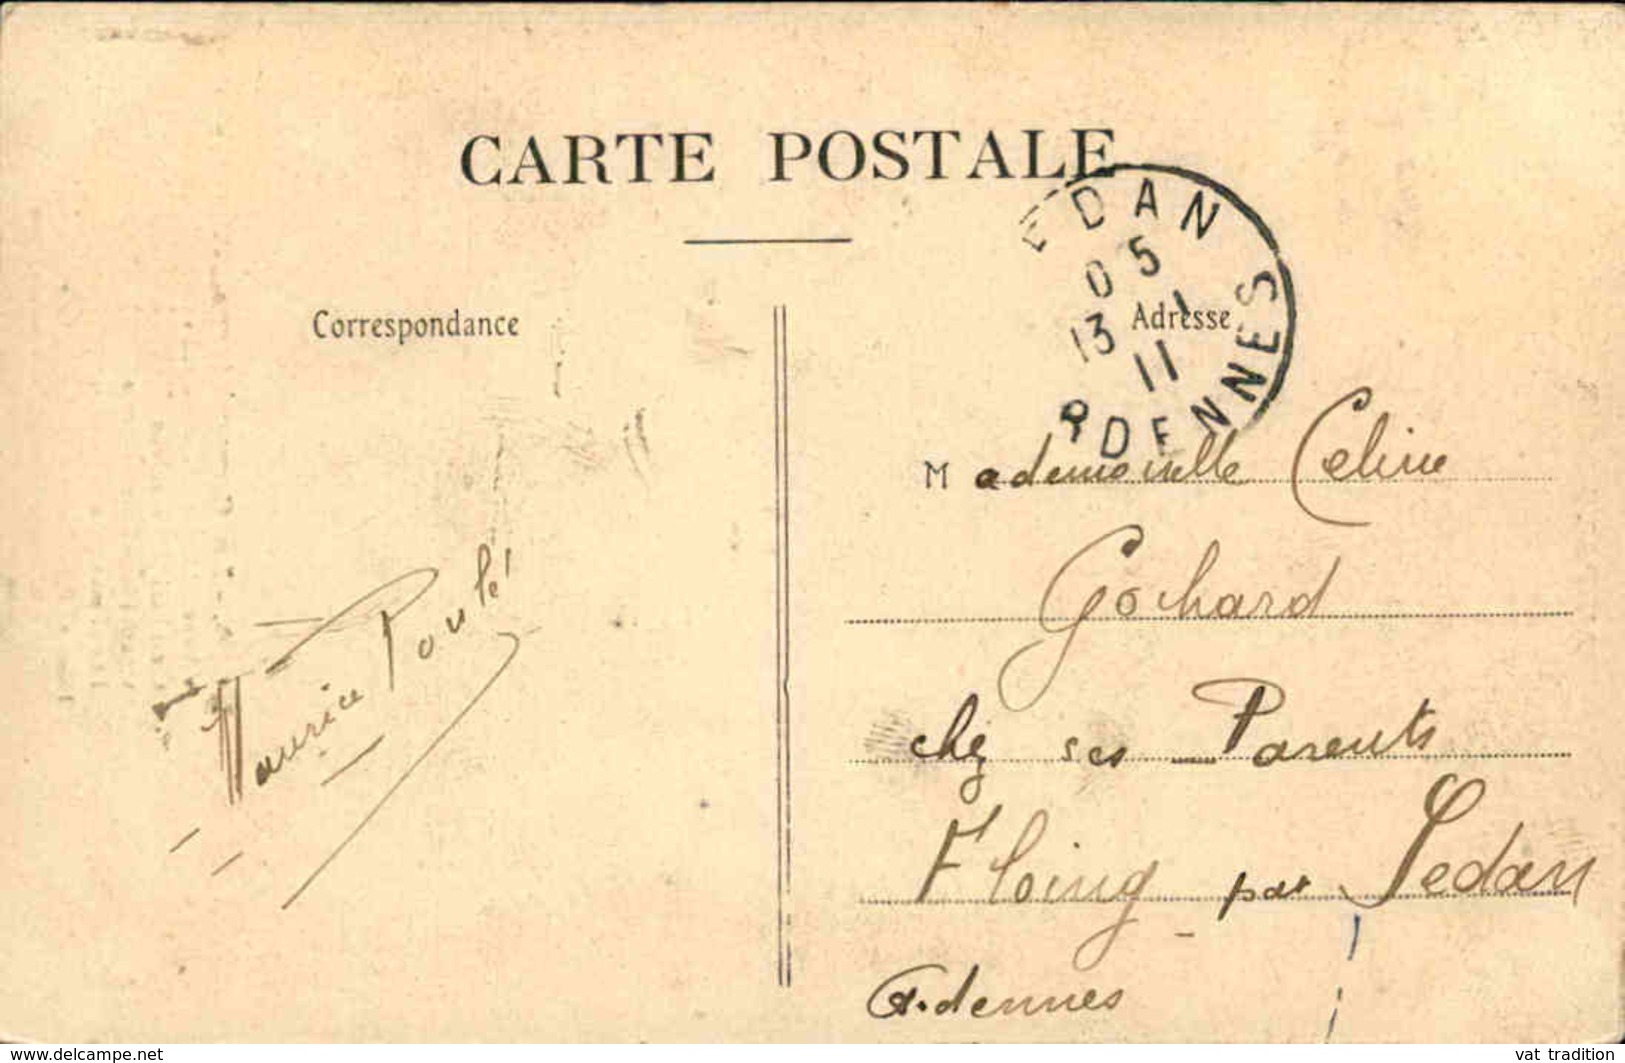 CARTE POSTALE
EDAN
0 5
13 1
11
RDENNES
Correspondance
Adresse
Maurice Poulé
Mademoiselle Celine
Gochard
chez ses Parents
Floing par Sedan
Ardennes
www.delcampe.net
vat_tradition